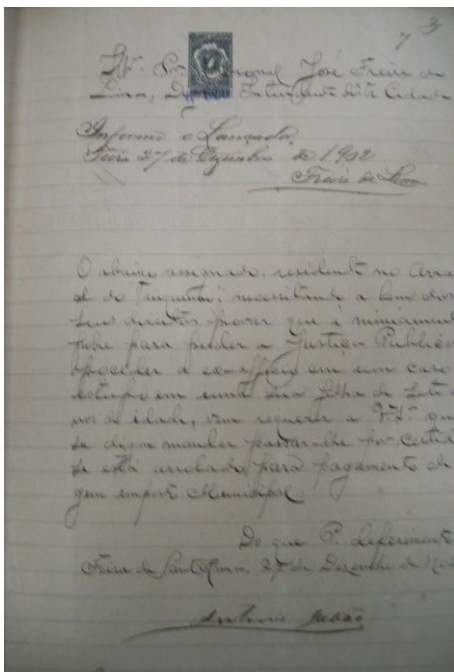 7 3
Illº. Snr. Coronel José Freire de
Lima, Intendente desta Cidade
Informe o Lançador.
Feira 27 de Dezembro de 1902
Freire de Lima
O abaixo assignado, residente no Arra
al do necessitando a bem dos
seus direitos provar que é miseravel
pobre para poder a Justiça Publica
proceder a ex-officio em um caso
estupro em uma sua filha de sete
nos de idade, vem requerer a V.Sª. que
se digne mandar passar-lhe por certid
se está arrolado para pagamento de
gum imposto Municipal.
Do que P. deferimento
Feira de Sant'Anna, 27 de Dezembro de
Antonio